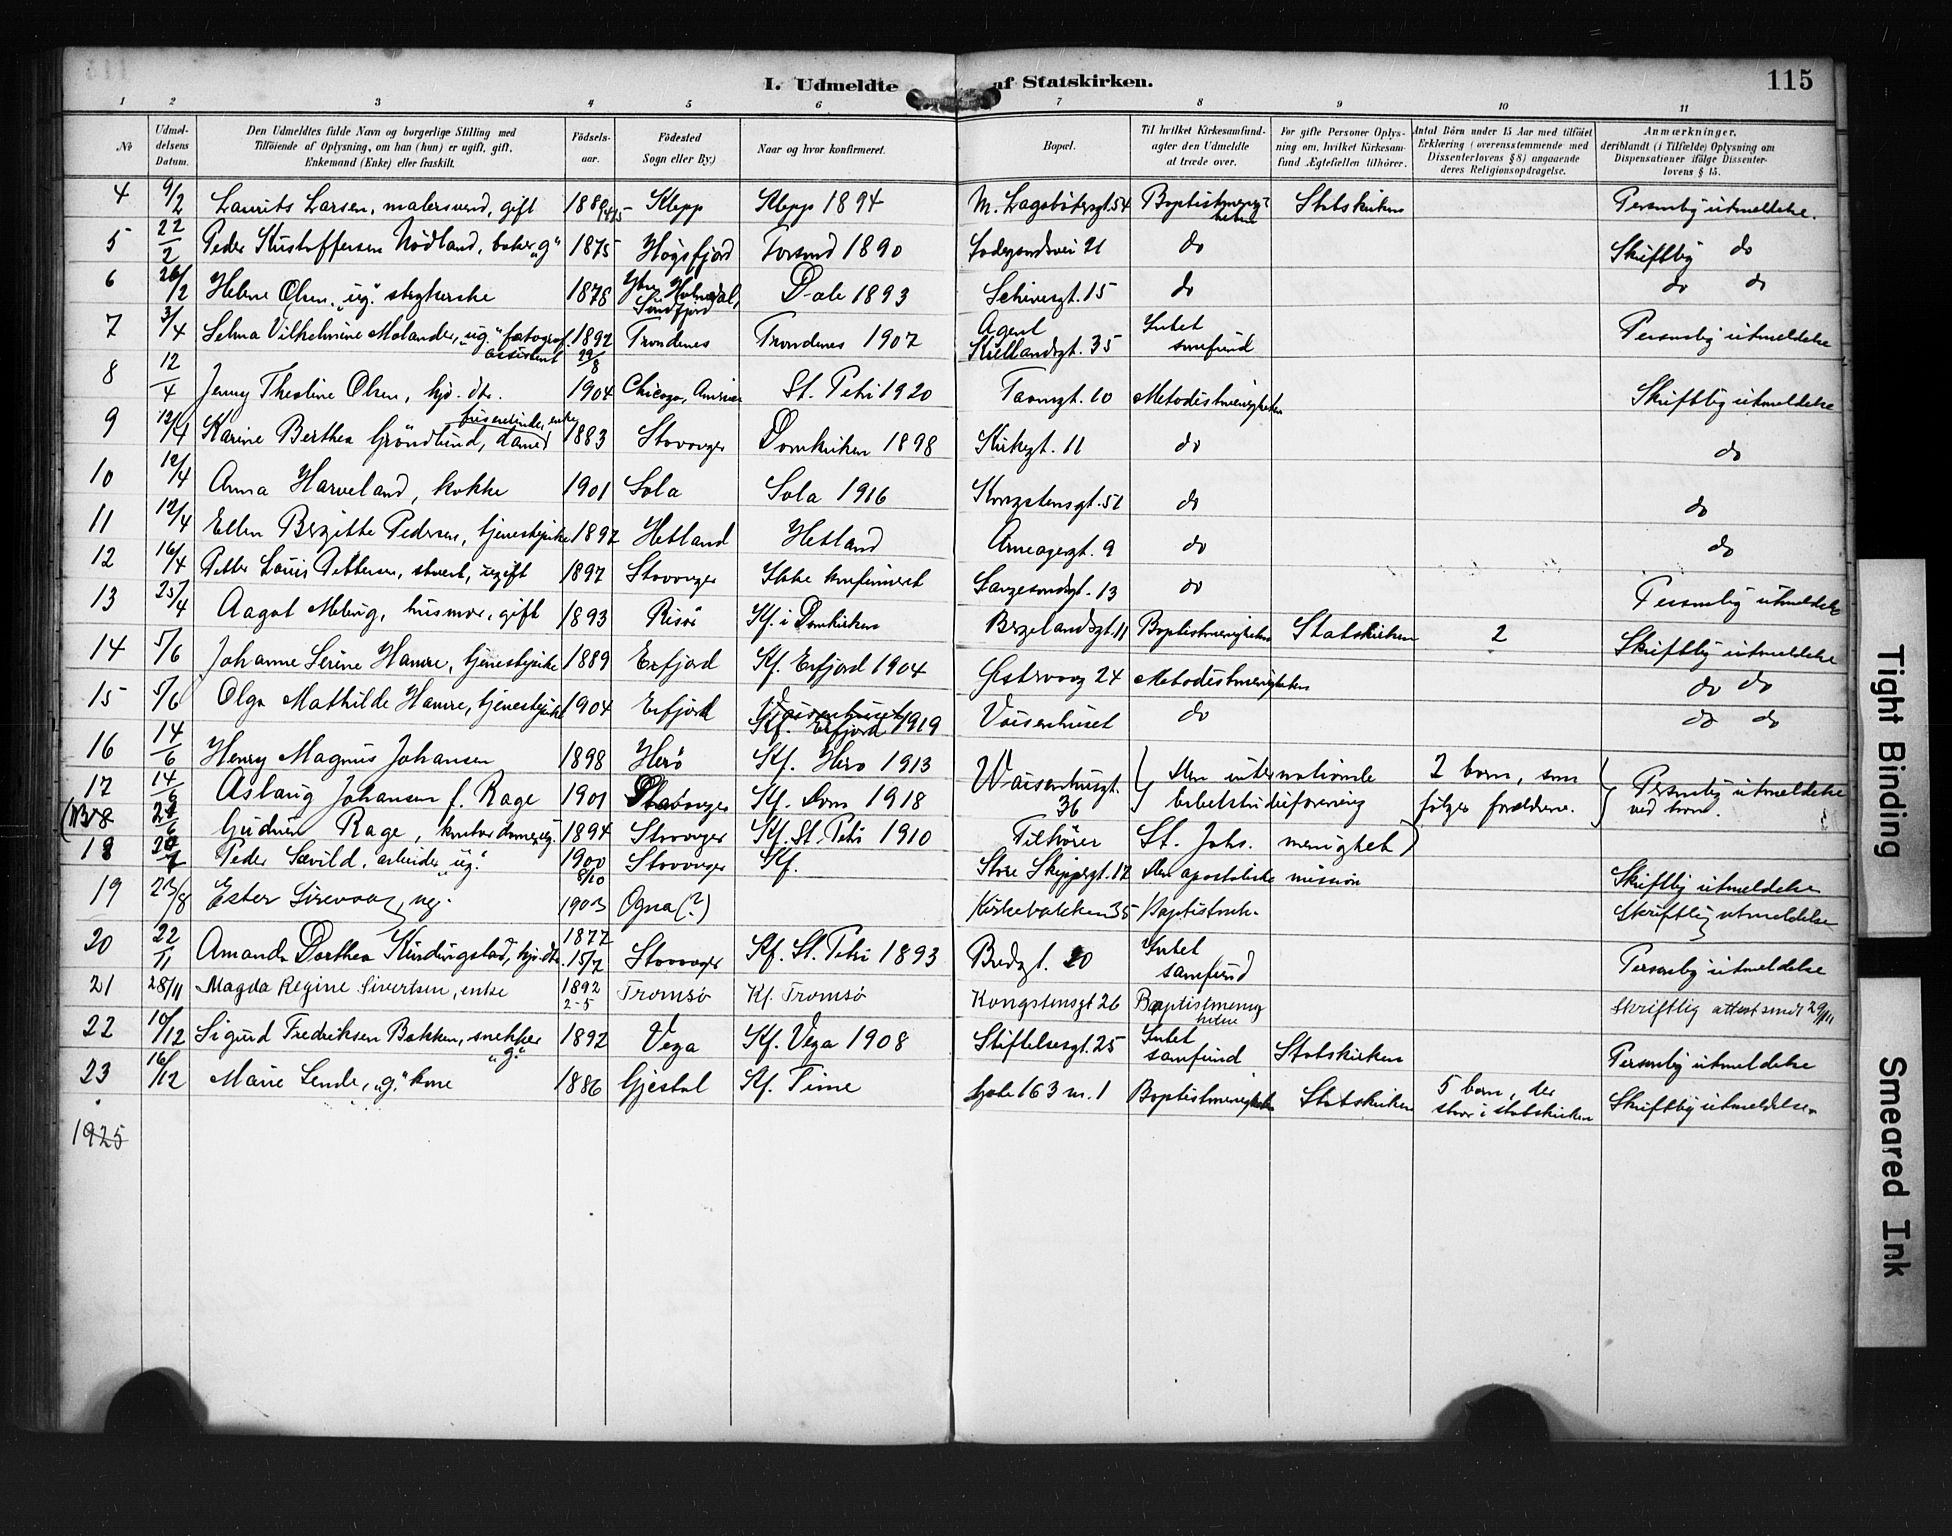 115
I. Udmeldte af Statskirken.
1 2 3 4 5 6 7 8 9 10 11
No
Udmeldelsens Datum.
Den Udmeldtes fulde Navn og borgerlige Stilling med Tilföiende af Oplysning, om han (hun) er ugift, gift, Enkemand (Enke) eller fraskilt.
Födselsaar.
Födested Sogn eller By.)
Naar og hvor konfirmeret.
Bopæl.
Til hvilket Kirkesamfund agter den Udmeldte at træde over.
For gifte Personer Oplysning om, hvilket Kirkesamfund Ægtefællen tilhörer.
Antal Börn under 15 Aar med tilföiet Erklæring (overensstemmende med Dissenterlovens § 8) angaaende deres Religionsopdragelse.
Anmærkninger, deriblandt (i Tilfælde) Oplysning om Dispensationer ifölge Dissenterlovens § 15.
4 9/2 Laurits Larsen, malersvend, gift Klepp Klepp 1894 54 Baptistmenigheten Statskirken Personlig utmeldelse.
5 22/2 Peder Kristoffersen Nödland, baker "g" 1875 Høgsfjord Forsand 1890 21 do Skriftlig do
6 26/2 Helene Olsen, "ug." strykerske 1878 Ytre Holmedal, Søndfjord Dale 1893 Schivesgt. 15 do do do
7 3/4 Selma Vilhelmine Molander, "ug." fotograf assistent 1892 29/8 Trondenes Trondenes 1907 Agent Kiellandsgt. 35 Intet samfund Personlig utmeldelse
8 12/4 Jenny Theoline Olsen, hjv. dtr. 1904 Chicago, Amerika St. Petri 1920 10 Metodistmenigheten Skriftlig utmeldelse
9 12/4 Karine Berthea Gröndlund, dame friserinde, enke 1883 Stavanger Domkirken 1898 Kirkegt. 11 do do
10 12/4 Anna Harveland, kokke 1901 Sola Sola 1916 Kongstensgt. 51 do do
11 12/4 Ellen Birgitte Pedersen, tjenestepike 1897 Hetland Hetland Arneagergt. 9 do do
12 16/4 Petter Louis Pettersen, stuert, ugift 1897 Stavanger Ikke konfirmeret 13 do Personlig utmeldelse
13 25/4 Aagot Meling, husmor, gift 1893 Risör Kf. i Domkirken Bergelandsgt. 11 Baptistmenigheten Statskirken 2 Skriftlig utmeldelse
14 5/6 Johanne Serine Hamre, tjenestepike 1889 Erfjord Kf. Erfjord 1904 Østervaag 24 Metodistmenigheten do do
15 5/6 Olga Mathilde Hamre, tjenestepike 1904 Erfjord Kf. Erfjord 1919 Vaisenhuset do do do
16 14/6 Henry Magnus Johansen 1898 Herö Kf. Herö 1913 Waisenhusgt. 36 Den internationale 2 barn, som Personlig utmeldelse
17 14/6 Aslaug Johansen f. Rage 1901 Stavanger Kf. Dom 1918 følger forældrene. ved
Gudrun Rage, kontordame, ug. 1894 Stavanger Kf. St. Petri 1910 Tilhörer St. Johs. menighet)
18 Peder Sævild, arbeider "ug." 1900 8/10 Stavanger Kf. Store Skippergt. 12 Den apostoliske mission Skriftlig utmeldelse
19 23/8 Ester Sirevaag, ug. 1903 Ogna (?) Kirkebakken 35 Skriftlig utmeldelse
20 22/11 Amanda Dorthea Kindingstad, hjv. dtr. 1877 15/7 Stavanger Kf. St. Petri 1893 Bredgt. 20 Intet samfund Personlig utmeldelse
21 28/11 Magda Regine Sivertsen, enke 1892 2-5 Tromsö Kf. Tromsö Kongstensgt 26 Baptistmenigheten Skriftlig attest sendt 29/11
22 10/12 Sigurd Fredriksen Bakken, snekker "g" 1892 Vega Kf. Vega 1908 Stiftelsesgt. 25 Intet samfund Statskirken Personlig utmeldelse
23 16/12 Marie Lende, "g." kone 1886 Gjestal Kf. Time 163 m. 1 Baptistmenigheten Statskirken 5 barn, der staar i statskirken Skriftlig utmeldelse.
1925
Tight Binding
Smeared Ink